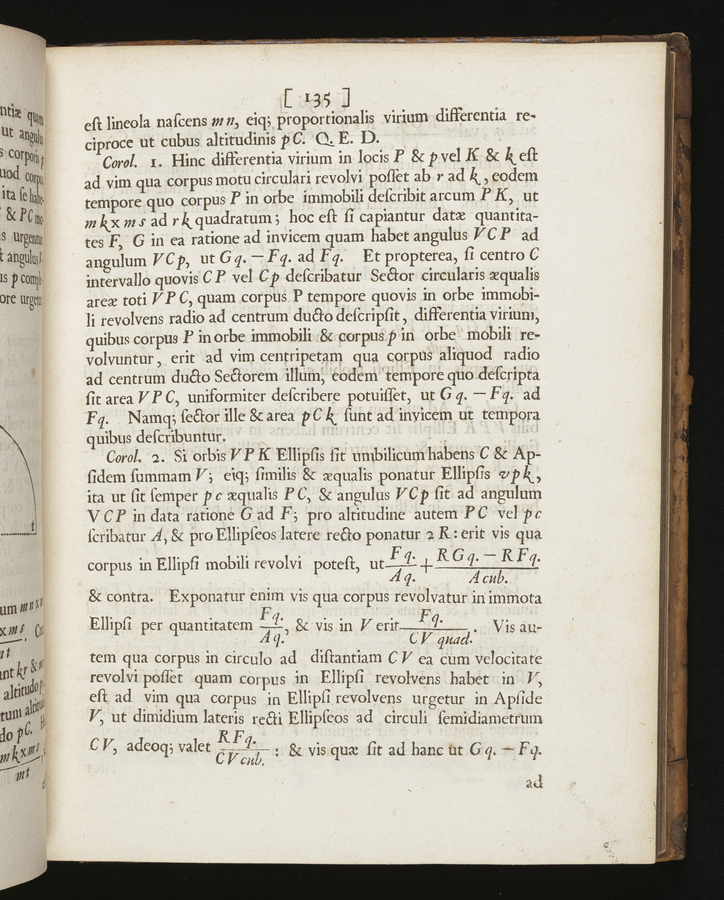 [ 135 ]
eſt lineola naſcens mn, eiq; proportionalis virium differentia re-
ciproce ut cubus altitudinis pC. Q. E. D.
Corol. 1. Hinc differentia virium in locis P & p vel K & k eſt
ad vim qua corpus motu circulari revolvi poſſet ab r ad k, eodem
tempore quo corpus P in orbe immobili deſcribit arcum PK, ut
mk x ms ad rk quadratum; hoc eſt ſi capiantur datæ quantita-
tes F, G in ea ratione ad invicem quam habet angulus VCP ad
angulum VCp, ut Gq. — Fq. ad Fq. Et propterea, ſi centro C
intervallo quovis CP vel Cp deſcribatur Sector circularis æqualis
areæ toti VPC, quam corpus P tempore quovis in orbe immobi-
li revolvens radio ad centrum ducto deſcripſit, differentia virium,
quibus corpus P in orbe immobili & corpus p in orbe mobili re-
volvuntur, erit ad vim centripetam qua corpus aliquod radio
ad centrum ducto Sectorem illum, eodem tempore quo deſcripta
ſit area VPC, uniformiter deſcribere potuiſſet, ut Gq. — Fq. ad
Fq. Namq; ſector ille & area pCk ſunt ad invicem ut tempora
quibus deſcribuntur.
Corol. 2. Si orbis VPK Ellipſis ſit umbilicum habens C & Ap-
ſidem ſummam V; eiq; ſimilis & æqualis ponatur Ellipſis vpk,
ita ut ſit ſemper pc æqualis PC, & angulus VCp ſit ad angulum
VCP in data ratione G ad F; pro altitudine autem PC vel pc
ſcribatur A, & pro Ellipſeos latere recto ponatur 2R: erit vis qua
corpus in Ellipſi mobili revolvi poteſt, ut Fq./Aq. + RGq. — RFq./A cub.
& contra. Exponatur enim vis qua corpus revolvatur in immota
Ellipſi per quantitatem Fq./Aq., & vis in V erit Fq./CV quad. Vis au-
tem qua corpus in circulo ad diſtantiam CV ea cum velocitate
revolvi poſſet quam corpus in Ellipſi revolvens habet in V,
eſt ad vim qua corpus in Ellipſi revolvens urgetur in Apſide
V, ut dimidium lateris recti Ellipſeos ad circuli ſemidiametrum
CV, adeoq; valet RFq./CV cub. : & vis quæ ſit ad hanc ut Gq. — Fq.
ad